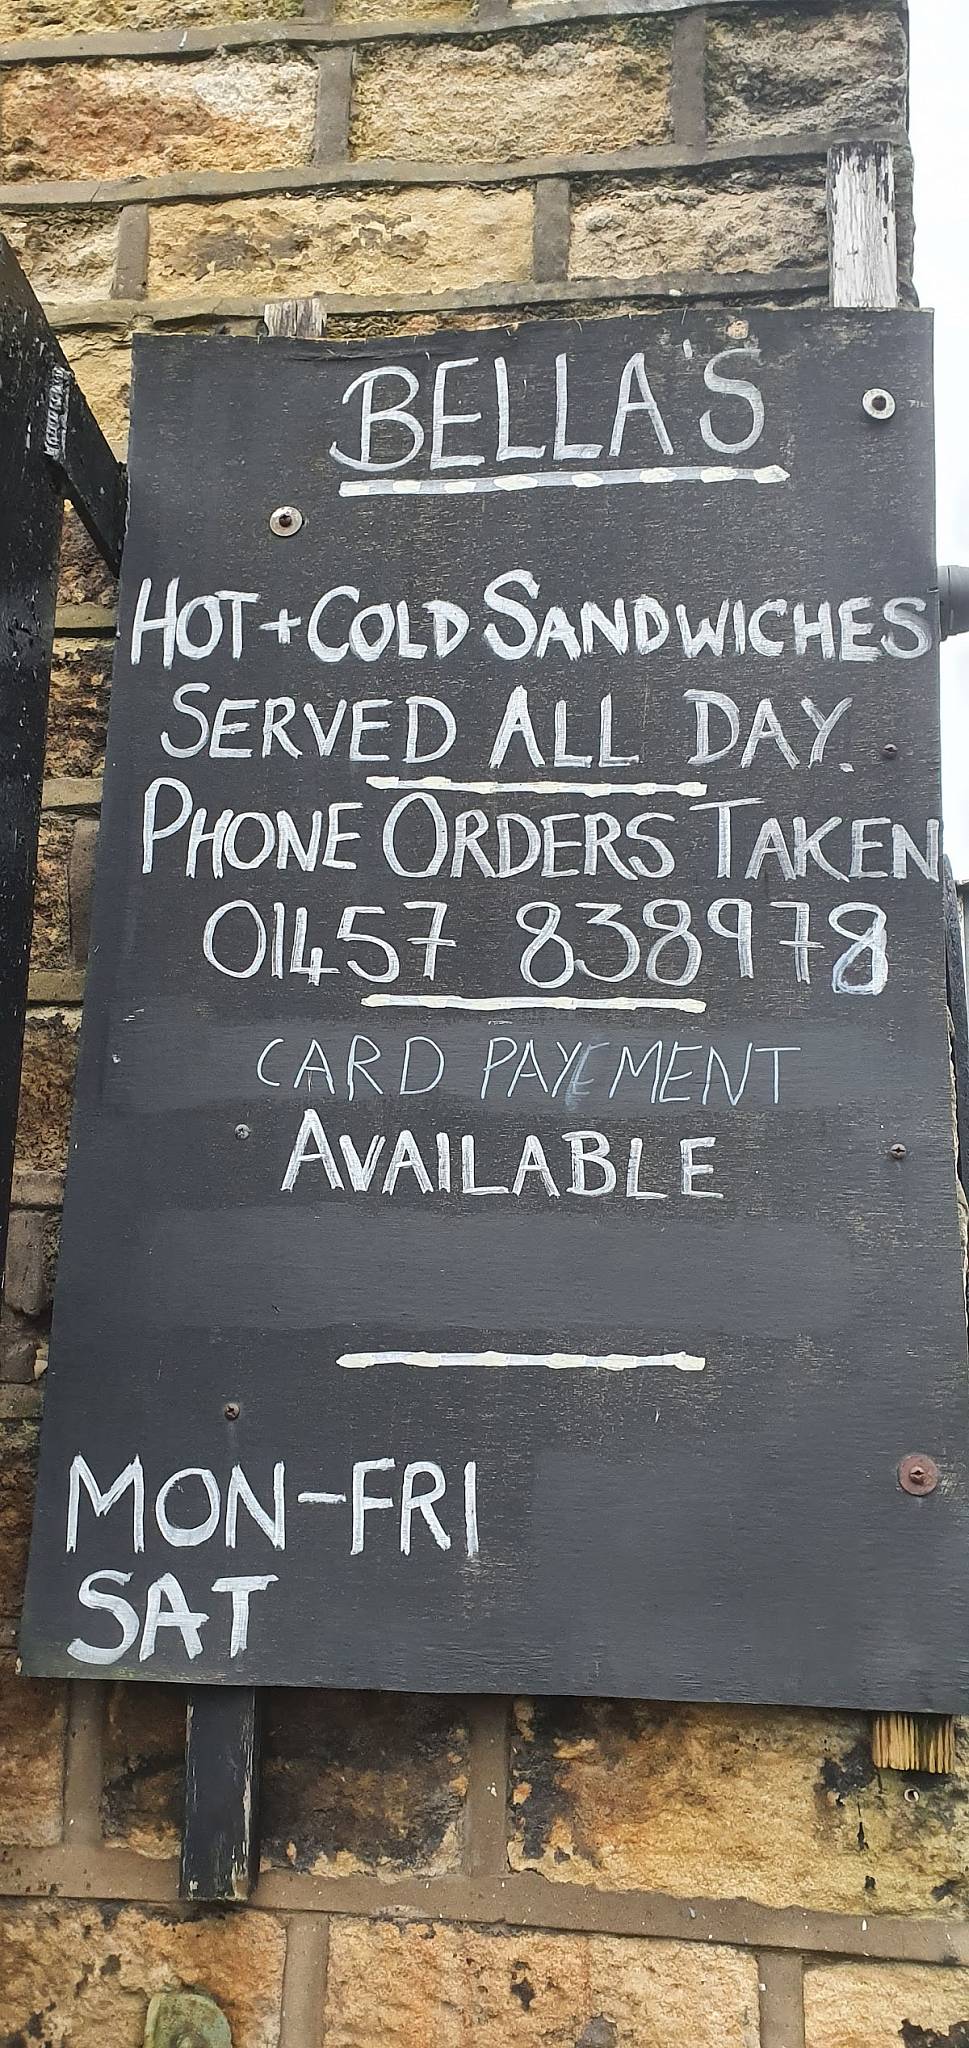 BELLA'S
HOT + COLD SANDWICHES
SERVED ALL DAY.
PHONE ORDERS TAKEN
01457 838978
CARD PAYEMENT
AVAILABLE
MON-FRI
SAT